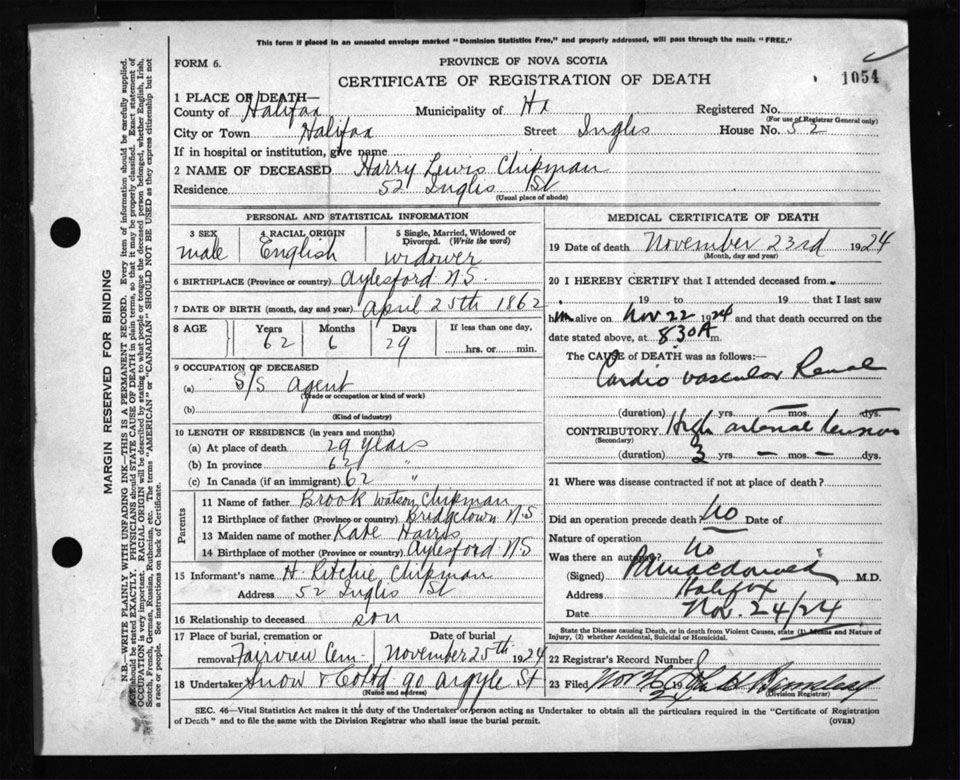 This form if placed in an unsealed envelope marked "Dominion Statistics Free," and properly addressed, will pass through the mails "FREE."
FORM 6.
PROVINCE OF NOVA SCOTIA
CERTIFICATE OF REGISTRATION OF DEATH
1054
1 PLACE OF DEATH—
County of Halifax Municipality of Hx Registered No.
(For use of Registrar General only)
City or Town Halifax Street Inglis House No. 52
If in hospital or institution, give name
2 NAME OF DECEASED Harry Lewis Chipman
Residence 52 Inglis St
(Usual place of abode)
PERSONAL AND STATISTICAL INFORMATION
3 SEX 4 RACIAL ORIGIN 5 Single, Married, Widowed or
Divorced. (Write the word)
male English widower
6 BIRTHPLACE (Province or country) Aylesford N.S.
7 DATE OF BIRTH (month, day and year) April 25th 1862
8 AGE Years Months Days If less than one day,
62 6 29 hrs. or min.
9 OCCUPATION OF DECEASED
(a) S/S agent
(Trade or occupation or kind of work)
(b)
(Kind of industry)
10 LENGTH OF RESIDENCE (in years and months)
(a) At place of death 29 years
(b) In province 62 "
(c) In Canada (if an immigrant) 62 "
Parents
11 Name of father Brook Watson Chipman
12 Birthplace of father (Province or country) Bridgetown N.S
13 Maiden name of mother Kate Harris
14 Birthplace of mother (Province or country) Aylesford N.S
15 Informant's name H. Ritchie Chipman
Address 52 Inglis St
16 Relationship to deceased son
17 Place of burial, cremation or Date of burial
removal Fairview Cem November 25th 1924
18 Undertaker Snow & Co Ltd 90 Argyle St
(Name and address)
MEDICAL CERTIFICATE OF DEATH
19 Date of death November 23rd 1924
(Month, day and year)
20 I HEREBY CERTIFY that I attended deceased from
19 to 19 that I last saw
him alive on Nov 22 1924 and that death occurred on the
date stated above, at 830A m.
The CAUSE of DEATH was as follows:—
Cardio vascular Renal
(duration) yrs. — mos. dys.
CONTRIBUTORY High arterial tension
(Secondary)
(duration) 3 yrs. — mos. — dys.
21 Where was disease contracted if not at place of death?
Did an operation precede death? No Date of
Nature of operation
Was there an autopsy? no
(Signed) M.D.
Address Halifax
Date Nov. 24/24
State the Disease causing Death, or in death from Violent Causes, state (1) Means and Nature of
Injury, (2) whether Accidental, Suicidal or Homicidal.
22 Registrar's Record Number
23 Filed Nov 19
Division Registrar
SEC. 46—Vital Statistics Act makes it the duty of the Undertaker or person acting as Undertaker to obtain all the particulars required in the "Certificate of Registration
of Death" and to file the same with the Division Registrar who shall issue the burial permit.
(OVER)
MARGIN RESERVED FOR BINDING
N.B.—WRITE PLAINLY WITH UNFADING INK—THIS IS A PERMANENT RECORD. Every item of information should be carefully supplied.
AGE should be stated EXACTLY. PHYSICIANS should STATE CAUSE OF DEATH in plain terms, so that it may be properly classified. Exact statement of
OCCUPATION is very important. RACIAL ORIGIN will be described by stating to what people or tongue the deceased person belonged, whether English, Irish,
Scotch, French, German, Russian, Ruthenian, etc. The terms "AMERICAN" or "CANADIAN" SHOULD NOT BE USED as they express citizenship but not
a race or people. See instructions on back of Certificate.